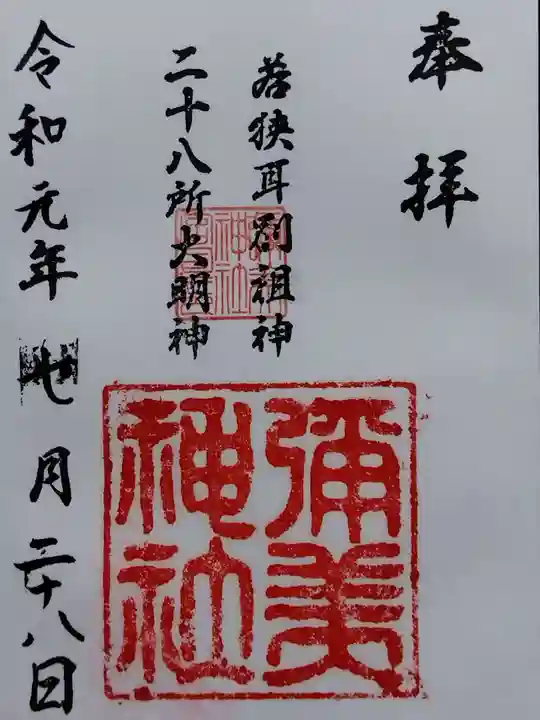 奉拝
若狭耳別祖神
二十八所大明神
彌美
神社
令和元年七月二十八日